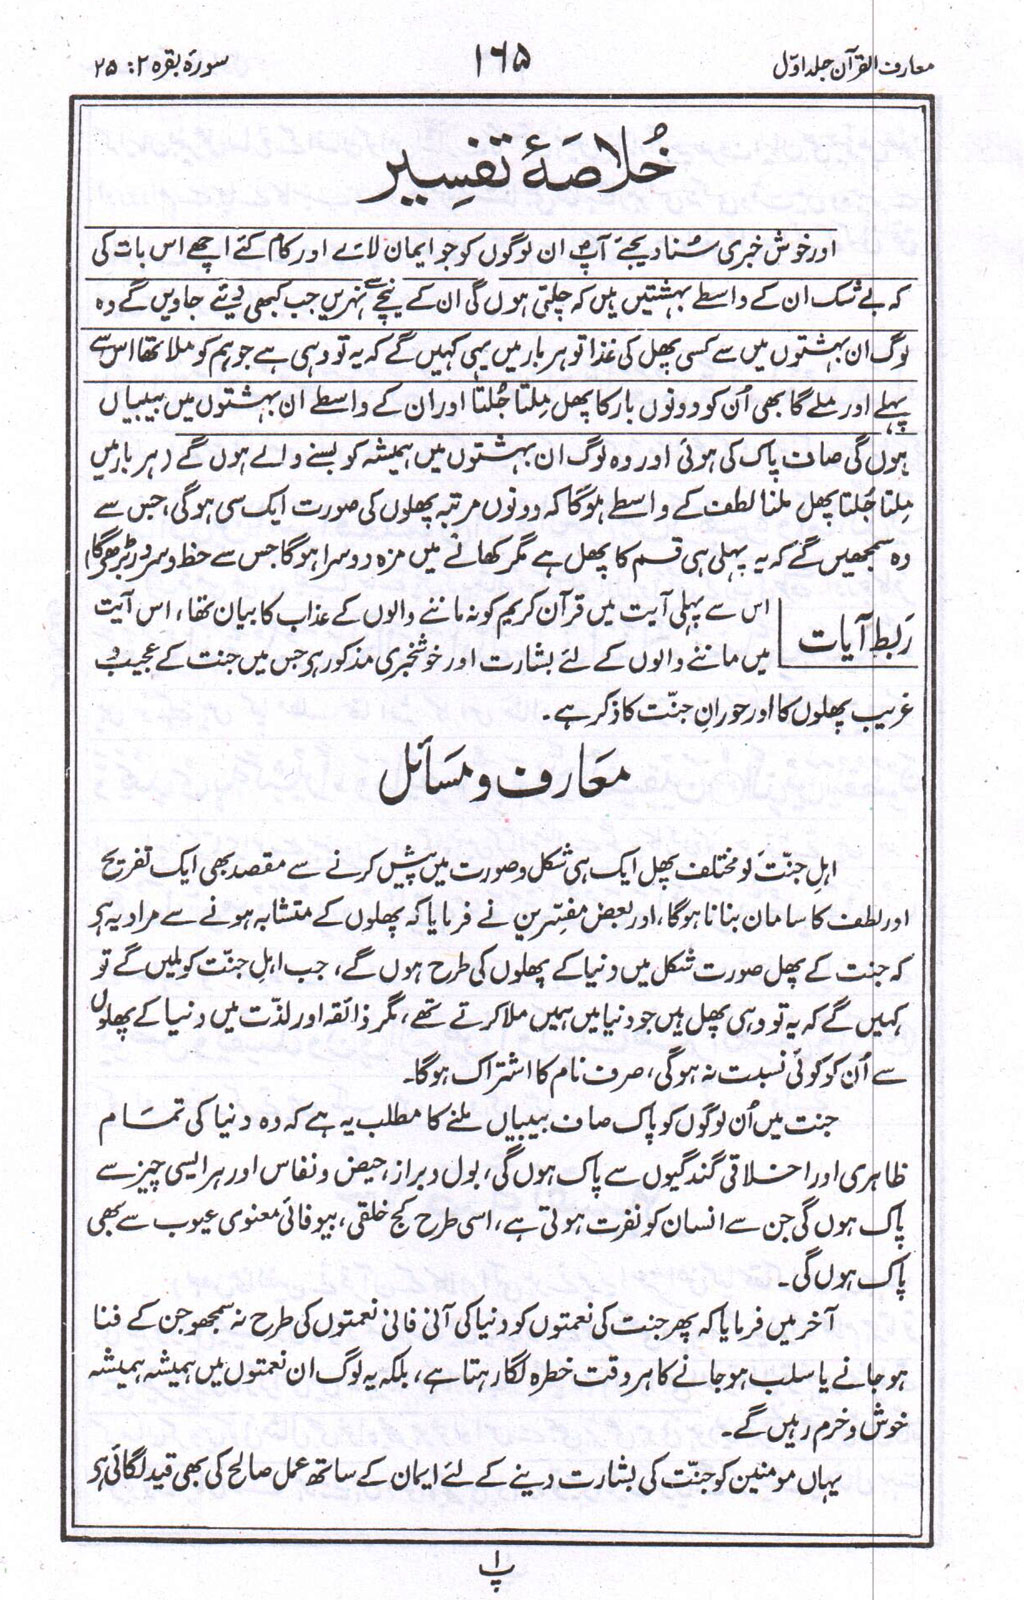 معارف القرآن جلد اوّل
۱۶۵
سورۂ بقرہ ۲: ۲۵
خُلاصَۂ تفسِیر
اور خوش خبری سُنا دیجئے آپؐ ان لوگوں کو جو ایمان لائے اور کام کئے اچھے اس بات کی
کہ بے شک ان کے واسطے بہشتیں ہیں کہ چلتی ہوں گی ان کے نیچے سے نہریں جب کبھی دیئے جاویں گے وہ
لوگ ان بہشتوں میں سے کسی پھل کی غذا تو ہر بار میں یہی کہیں گے کہ یہ تو وہی ہے جو ہم کو ملا تھا اس سے
پہلے اور ملے گا بھی اُن کو دونوں بار کا پھل مِلتا جُلتا اور ان کے واسطے ان بہشتوں میں بیبیاں
ہوں گی صاف پاک کی ہوئی اور وہ لوگ ان بہشتوں میں ہمیشہ کو بسنے والے ہوں گے (ہر بار میں
مِلتا جُلتا پھل ملنا لطف کے واسطے ہوگا کہ دونوں مرتبہ پھلوں کی صورت ایک سی ہوگی، جس سے
وہ سمجھیں گے کہ یہ پہلی ہی قسم کا پھل ہے مگر کھانے میں مزہ دوسرا ہوگا جس سے حظ و سرور بڑھے گا)
ربط آیات
اس سے پہلی آیت میں قرآن کریم کو نہ ماننے والوں کے عذاب کا بیان تھا، اس آیت
میں ماننے والوں کے لئے بشارت اور خوشخبری مذکور ہی جس میں جنت کے عجیب و
غریب پھلوں کا اور حورانِ جنّت کا ذکر ہے۔
معَارف و مسَائل
اہلِ جنّت کو مختلف پھل ایک ہی شکل و صورت میں پیش کرنے سے مقصد بھی ایک تفریح
اور لطف کا سامان بنانا ہوگا، اور بعض مفسّرین نے فرمایا کہ پھلوں کے متشابہ ہونے سے مراد یہ ہی
کہ جنت کے پھل صورت شکل میں دنیا کے پھلوں کی طرح ہوں گے، جب اہلِ جنّت کو ملیں گے تو
کہیں گے کہ یہ تو وہی پھل ہیں جو دنیا میں ہمیں ملا کرتے تھے، مگر ذائقہ اور لذّت میں دنیا کے پھلوں
سے اُن کو کوئی نسبت نہ ہوگی، صرف نام کا اشتراک ہوگا۔
جنت میں اُن لوگوں کو پاک صاف بیبیاں ملنے کا مطلب یہ ہے کہ وہ دنیا کی تمام
ظاہری اور اخلاقی گندگیوں سے پاک ہوں گی، بول و براز، حیض و نفاس اور ہر ایسی چیز سے
پاک ہوں گی جن سے انسان کو نفرت ہوتی ہے، اسی طرح کج خلقی، بیوفائی معنوی عیوب سے بھی
پاک ہوں گی۔
آخر میں فرمایا کہ پھر جنت کی نعمتوں کو دنیا کی آنی فانی نعمتوں کی طرح نہ سمجھو جن کے فنا
ہو جانے یا سلب ہو جانے کا ہر وقت خطرہ لگا رہتا ہے، بلکہ یہ لوگ ان نعمتوں میں ہمیشہ ہمیشہ
خوش و خرم رہیں گے۔
یہاں مومنین کو جنّت کی بشارت دینے کے لئے ایمان کے ساتھ عمل صالح کی بھی قید لگائی ہی
پ۱